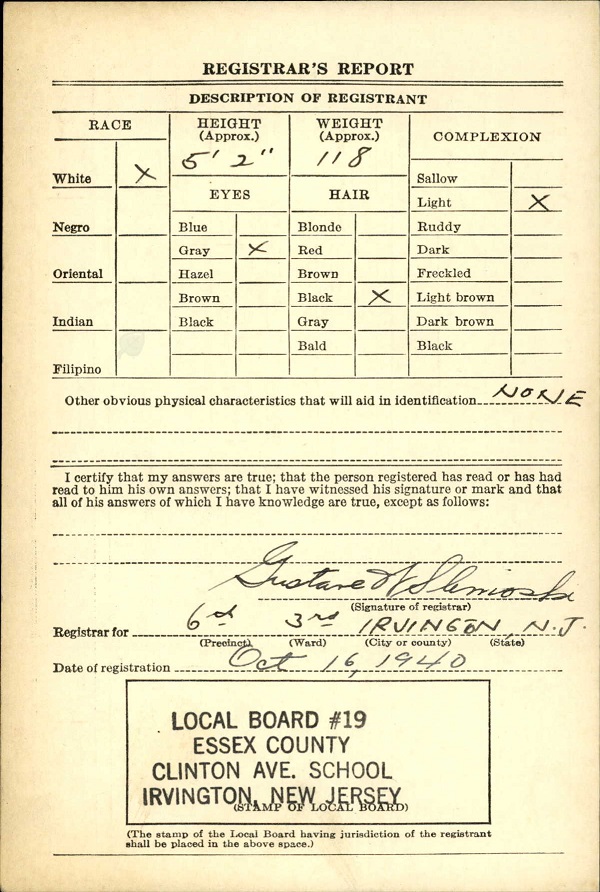 REGISTRAR'S REPORT
DESCRIPTION OF REGISTRANT
RACE
HEIGHT (Approx.)
WEIGHT (Approx.)
COMPLEXION
5' 2"
118
White X
Sallow
EYES
HAIR
Light X
Negro
Blue
Blonde
Ruddy
Gray X
Red
Dark
Oriental
Hazel
Brown
Freckled
Brown
Black X
Light brown
Indian
Black
Gray
Dark brown
Bald
Black
Filipino
Other obvious physical characteristics that will aid in identification NONE
I certify that my answers are true; that the person registered has read or has had
read to him his own answers; that I have witnessed his signature or mark and that
all of his answers of which I have knowledge are true, except as follows:
Gustave
(Signature of registrar)
Registrar for 6th 3rd IRVINGTON, N.J.
(Precinct) (Ward) (City or county) (State)
Date of registration Oct 16, 1940
LOCAL BOARD #19
ESSEX COUNTY
CLINTON AVE. SCHOOL
IRVINGTON, NEW JERSEY
(STAMP OF LOCAL BOARD)
(The stamp of the Local Board having jurisdiction of the registrant
shall be placed in the above space.)